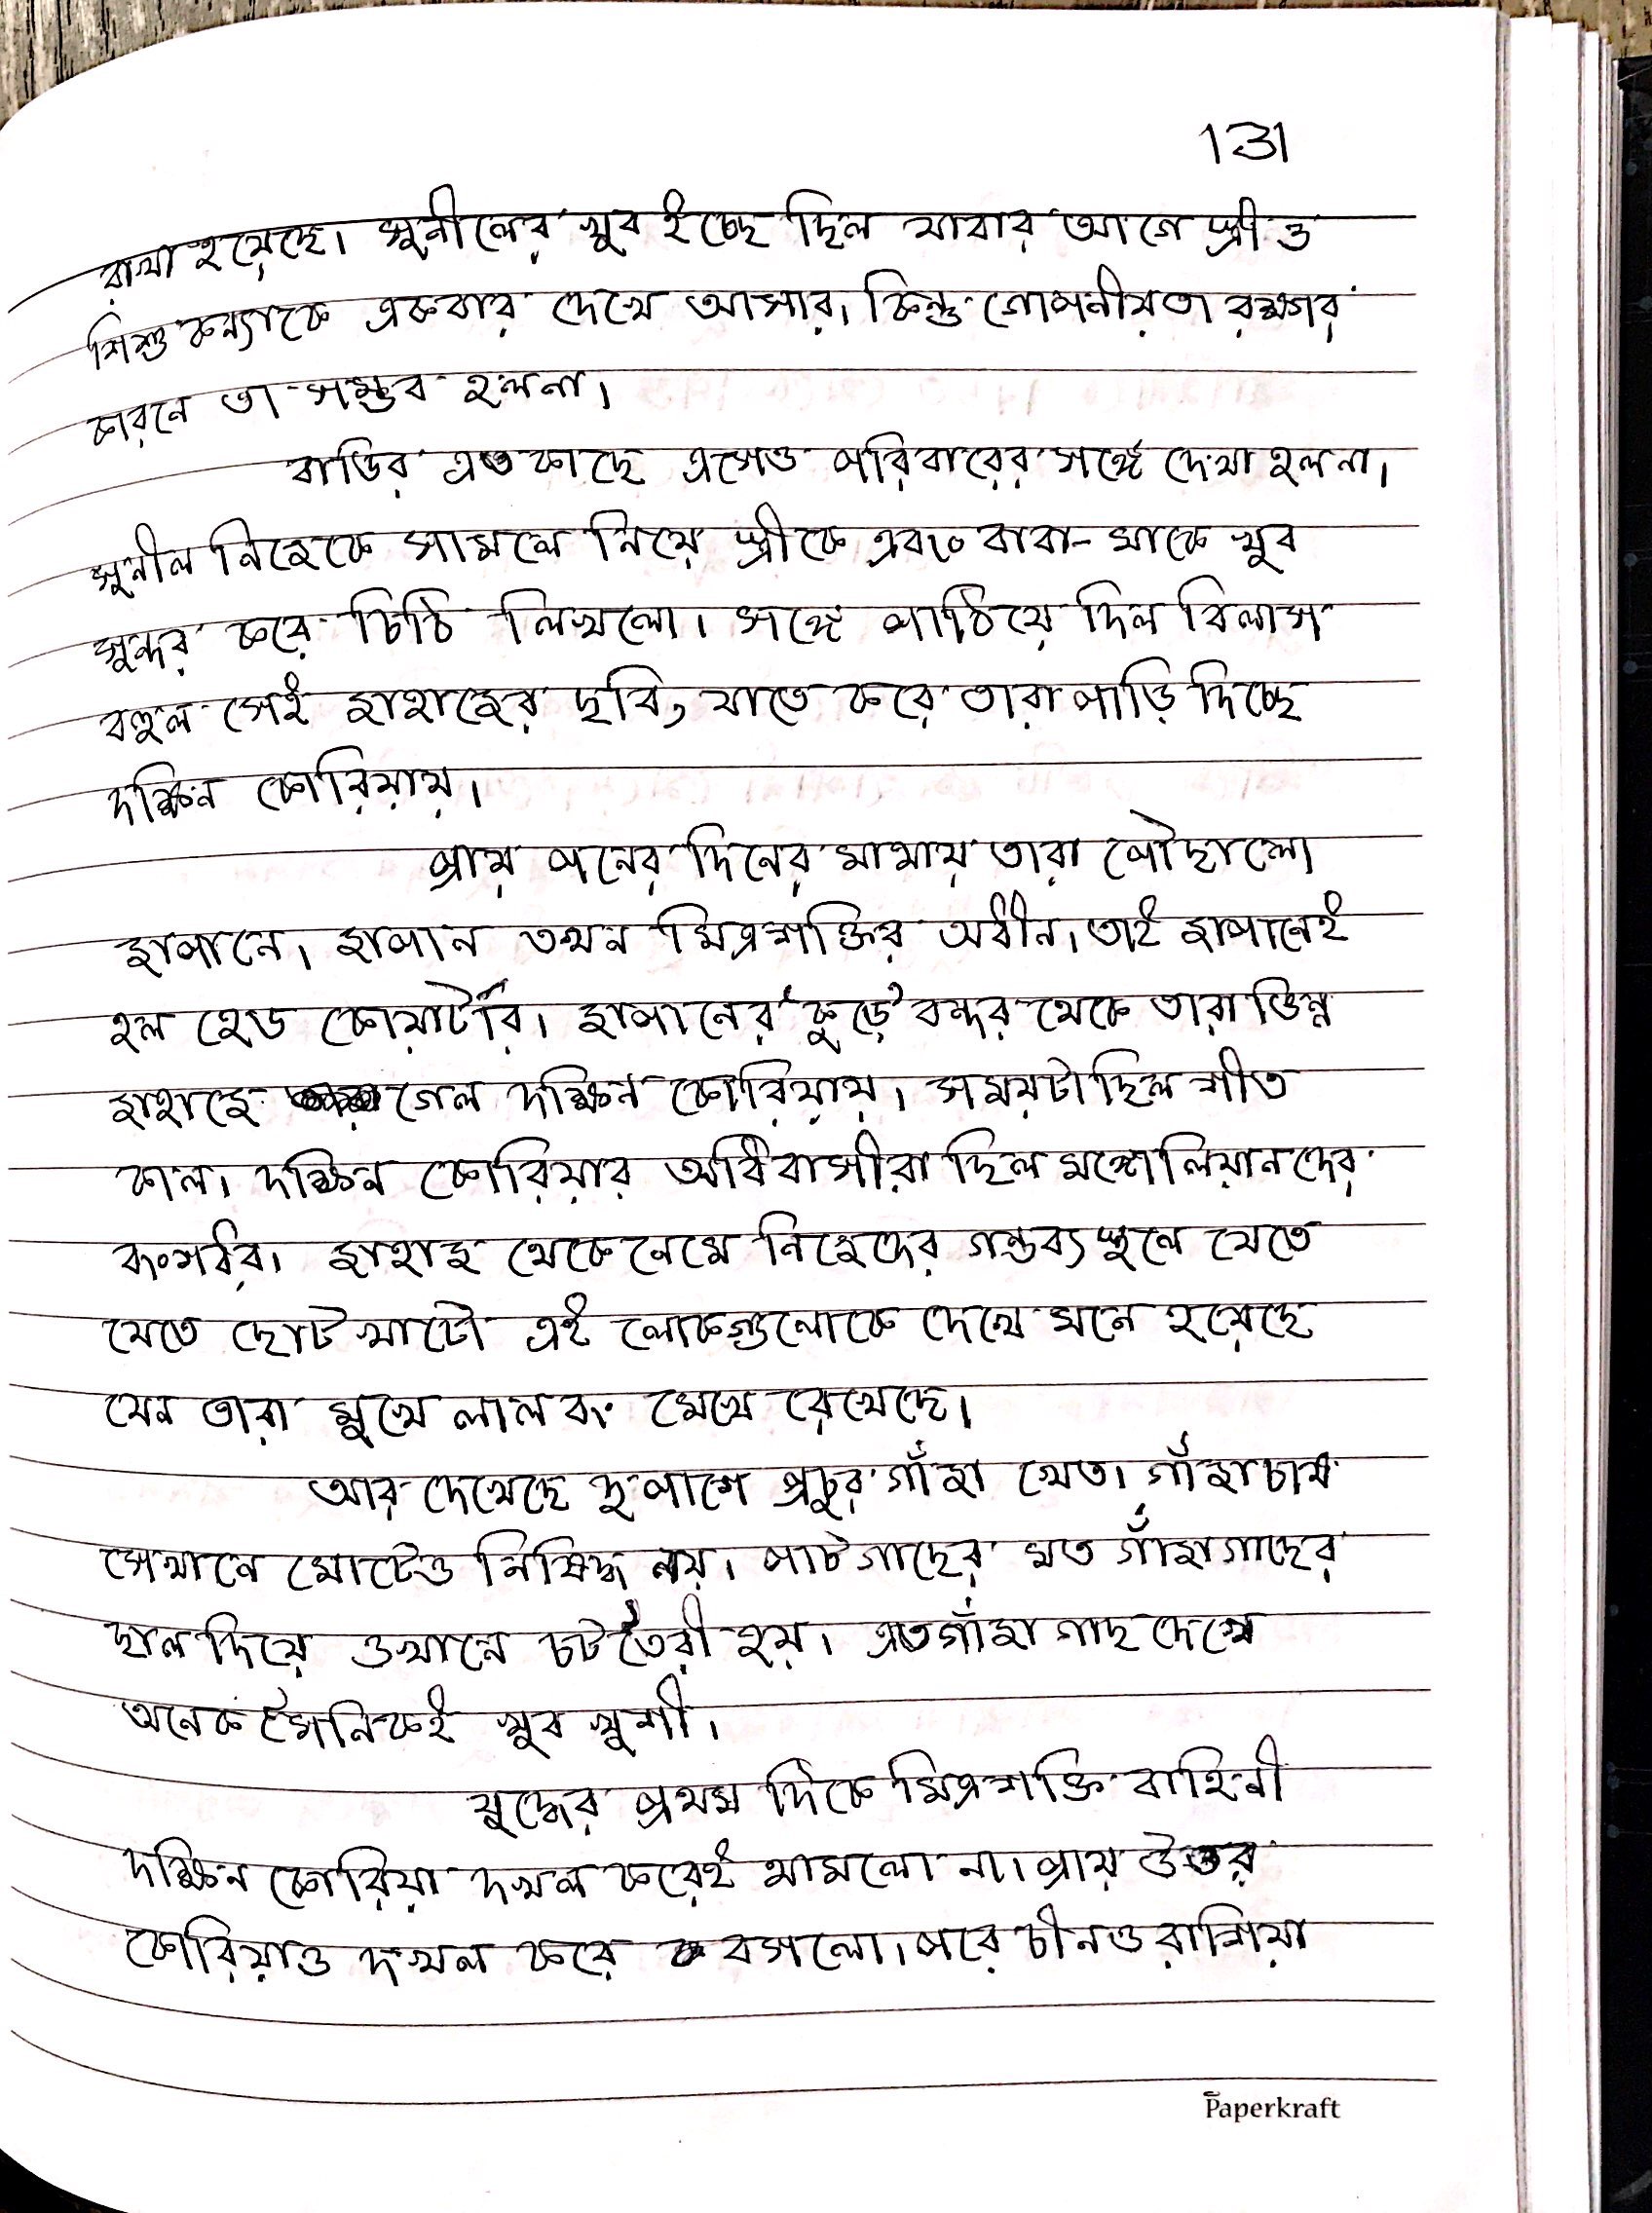 131
রাখা হয়েছে। সুনীলের খুব ইচ্ছে ছিল যাবার আগে স্ত্রী ও
শিশু কন্যাকে একবার দেখে আসার। কিন্তু গোপনীয়তা রক্ষার
কারনে তা সম্ভব হলনা।
বাড়ির এত কাছে এসেও পরিবারের সঙ্গে দেখা হলনা।
সুনীল নিজেকে সামলে নিয়ে স্ত্রীকে এবং বাবা-মাকে খুব
সুন্দর করে চিঠি লিখলো। সঙ্গে পাঠিয়ে দিল বিলাস
বহুল সেই জাহাজের ছবি, যাতে করে তারা পাড়ি দিচ্ছে
দক্ষিন কোরিয়ায়।
প্রায় পনের দিনের মাথায় তারা পৌছালো
জাপানে। জাপান তখন মিত্রশক্তির অধীন। তাই জাপানেই
হল হেড কোয়ার্টার। জাপানের 'কুড়ে' বন্দর থেকে তারা ভিন্ন
জাহাজে গেল দক্ষিন কোরিয়ায়। সময়টা ছিল শীত
কাল। দক্ষিন কোরিয়ার অধিবাসীরা ছিল মঙ্গোলিয়ানদের
বংশধর। জাহাজ থেকে নেমে নিজেদের গন্তব্যস্থলে যেতে
যেতে ছোট খাটো এই লোকগুলোকে দেখে মনে হয়েছে
যেন তারা মুখে লাল রং মেখে রেখেছে।
আর দেখেছে দুপাশে প্রচুর গাঁজা খেত। গাঁজা চাষ
সেখানে মোটেও নিষিদ্ধ নয়। পাটগাছের মত গাঁজাগাছের
ছাল দিয়ে ওখানে চট তৈরী হয়। এত গাঁজা গাছ দেখে
অনেক সৈনিকই খুব খুশী।
যুদ্ধের প্রথম দিকে মিত্রশক্তি বাহিনী
দক্ষিন কোরিয়া দখল করেই থামলো না। প্রায় উত্তর
কোরিয়াও দখল করে বসলো। পরে চীন ও রাশিয়া
Paperkraft